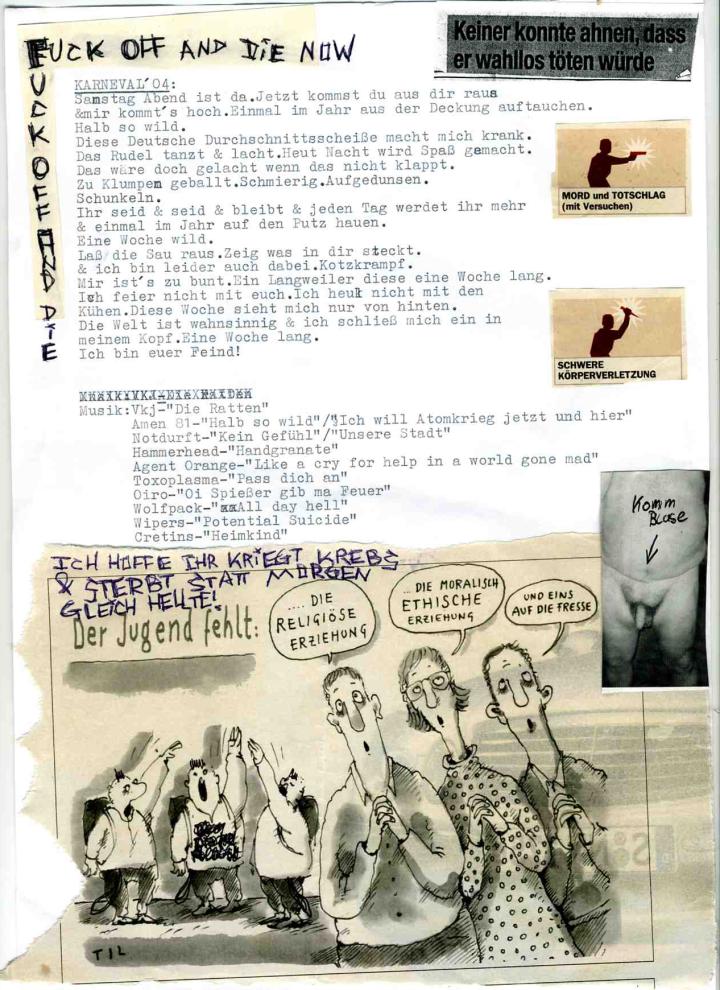 FUCK OFF AND DIE NOW
FUCK OFF AND DIE
Keiner konnte ahnen, dass
er wahllos töten würde
KARNEVAL'04:
Samstag Abend ist da.Jetzt kommst du aus dir raus
&mir kommt's hoch.Einmal im Jahr aus der Deckung auftauchen.
Halb so wild.
Diese Deutsche Durchschnittsscheiße macht mich krank.
Das Rudel tanzt & lacht.Heut Nacht wird Spaß gemacht.
Das wäre doch gelacht wenn das nicht klappt.
Zu Klumpen geballt.Schmierig.Aufgedunsen.
Schunkeln.
Ihr seid & seid & bleibt & jeden Tag werdet ihr mehr
& einmal im Jahr auf den Putz hauen.
Eine Woche wild.
Laß die Sau raus.Zeig was in dir steckt.
& ich bin leider auch dabei.Kotzkrampf.
Mir ist's zu bunt.Ein Langweiler diese eine Woche lang.
Ich feier nicht mit euch.Ich heul nicht mit den
Kühen.Diese Woche sieht mich nur von hinten.
Die Welt ist wahnsinnig & ich schließ mich ein in
meinem Kopf.Eine Woche lang.
Ich bin euer Feind!
MORD und TOTSCHLAG
(mit Versuchen)
SCHWERE
KÖRPERVERLETZUNG
Musik:Vkj-"Die Ratten"
Amen 81-"Halb so wild"/"Ich will Atomkrieg jetzt und hier"
Notdurft-"Kein Gefühl"/"Unsere Stadt"
Hammerhead-"Handgranate"
Agent Orange-"Like a cry for help in a world gone mad"
Toxoplasma-"Pass dich an"
Oiro-"Oi Spießer gib ma Feuer"
Wolfpack-"All day hell"
Wipers-"Potential Suicide"
Cretins-"Heimkind"
Komm
Blase
ICH HOFFE IHR KRIEGT KREBS
& STERBT STATT MORGEN
GLEICH HEUTE!
Der Jugend fehlt:
.... DIE
RELIGIÖSE
ERZIEHUNG
... DIE MORALISCH
ETHISCHE
ERZIEHUNG
UND EINS
AUF DIE FRESSE
TIL